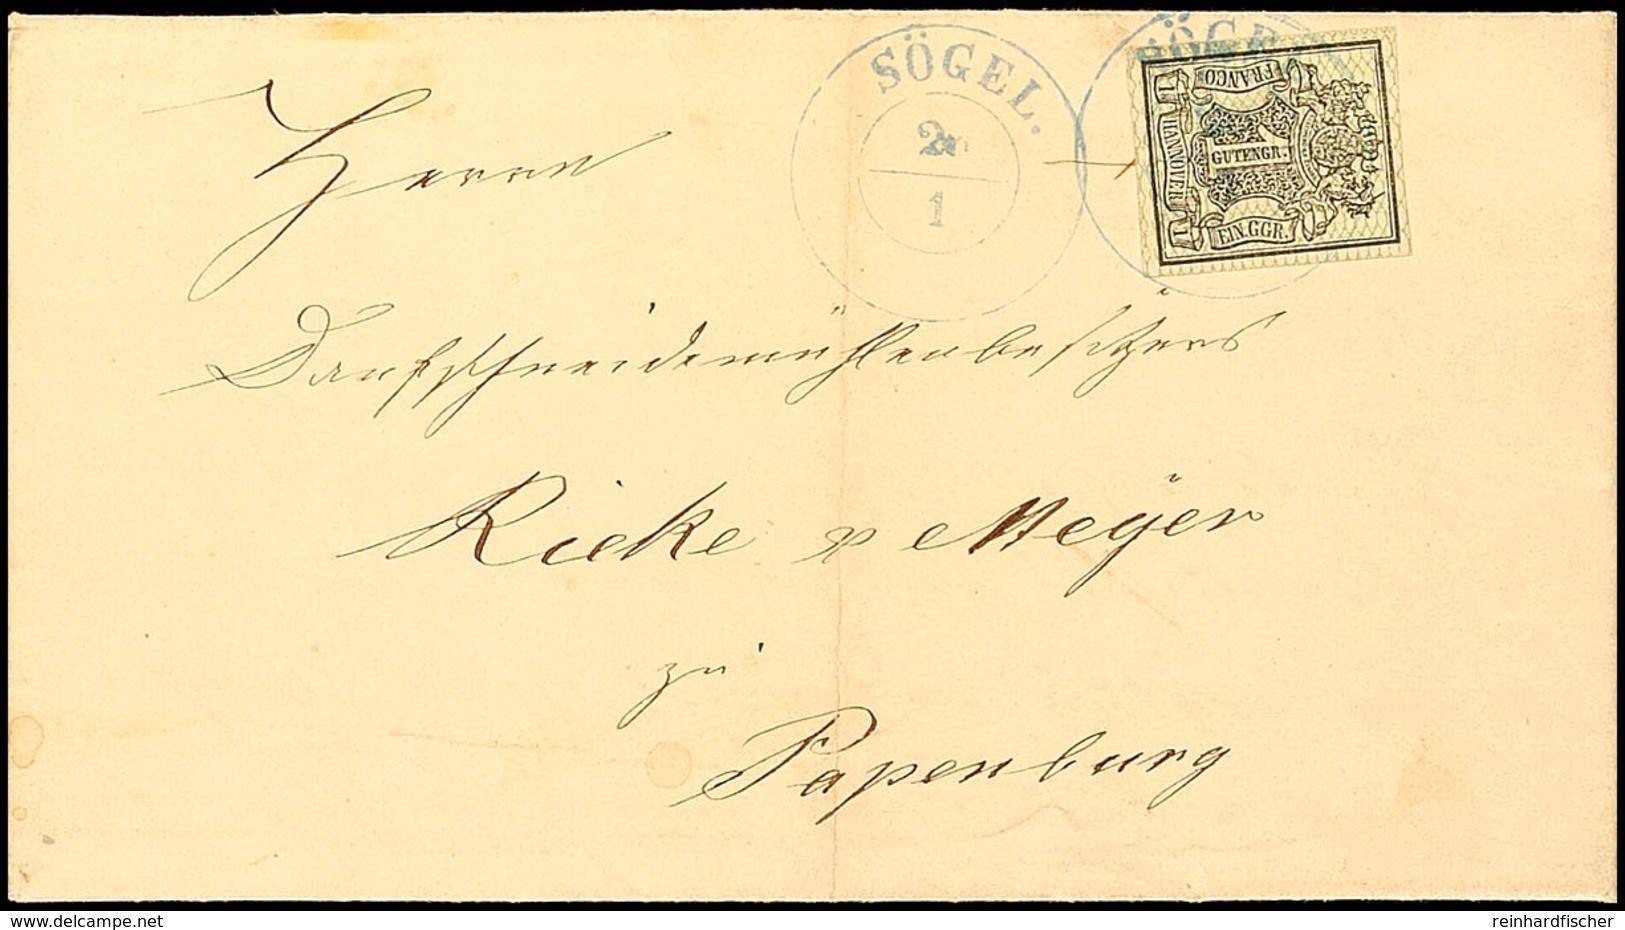 SÖGEL.
2
1
SÖGEL
FRANCO
HANNOVER
1
GUTENGR.
EIN.GGR.
1
Herrn
Dampfschneidemühlenbesitzers
Rieke & Meÿer
zu
Papenburg
www.delcampe.net
reinhardfischer